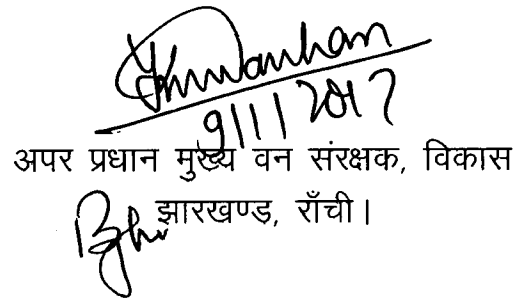 9/11/2017
अपर प्रधान मुख्य वन संरक्षक, विकास
झारखण्ड, राँची।